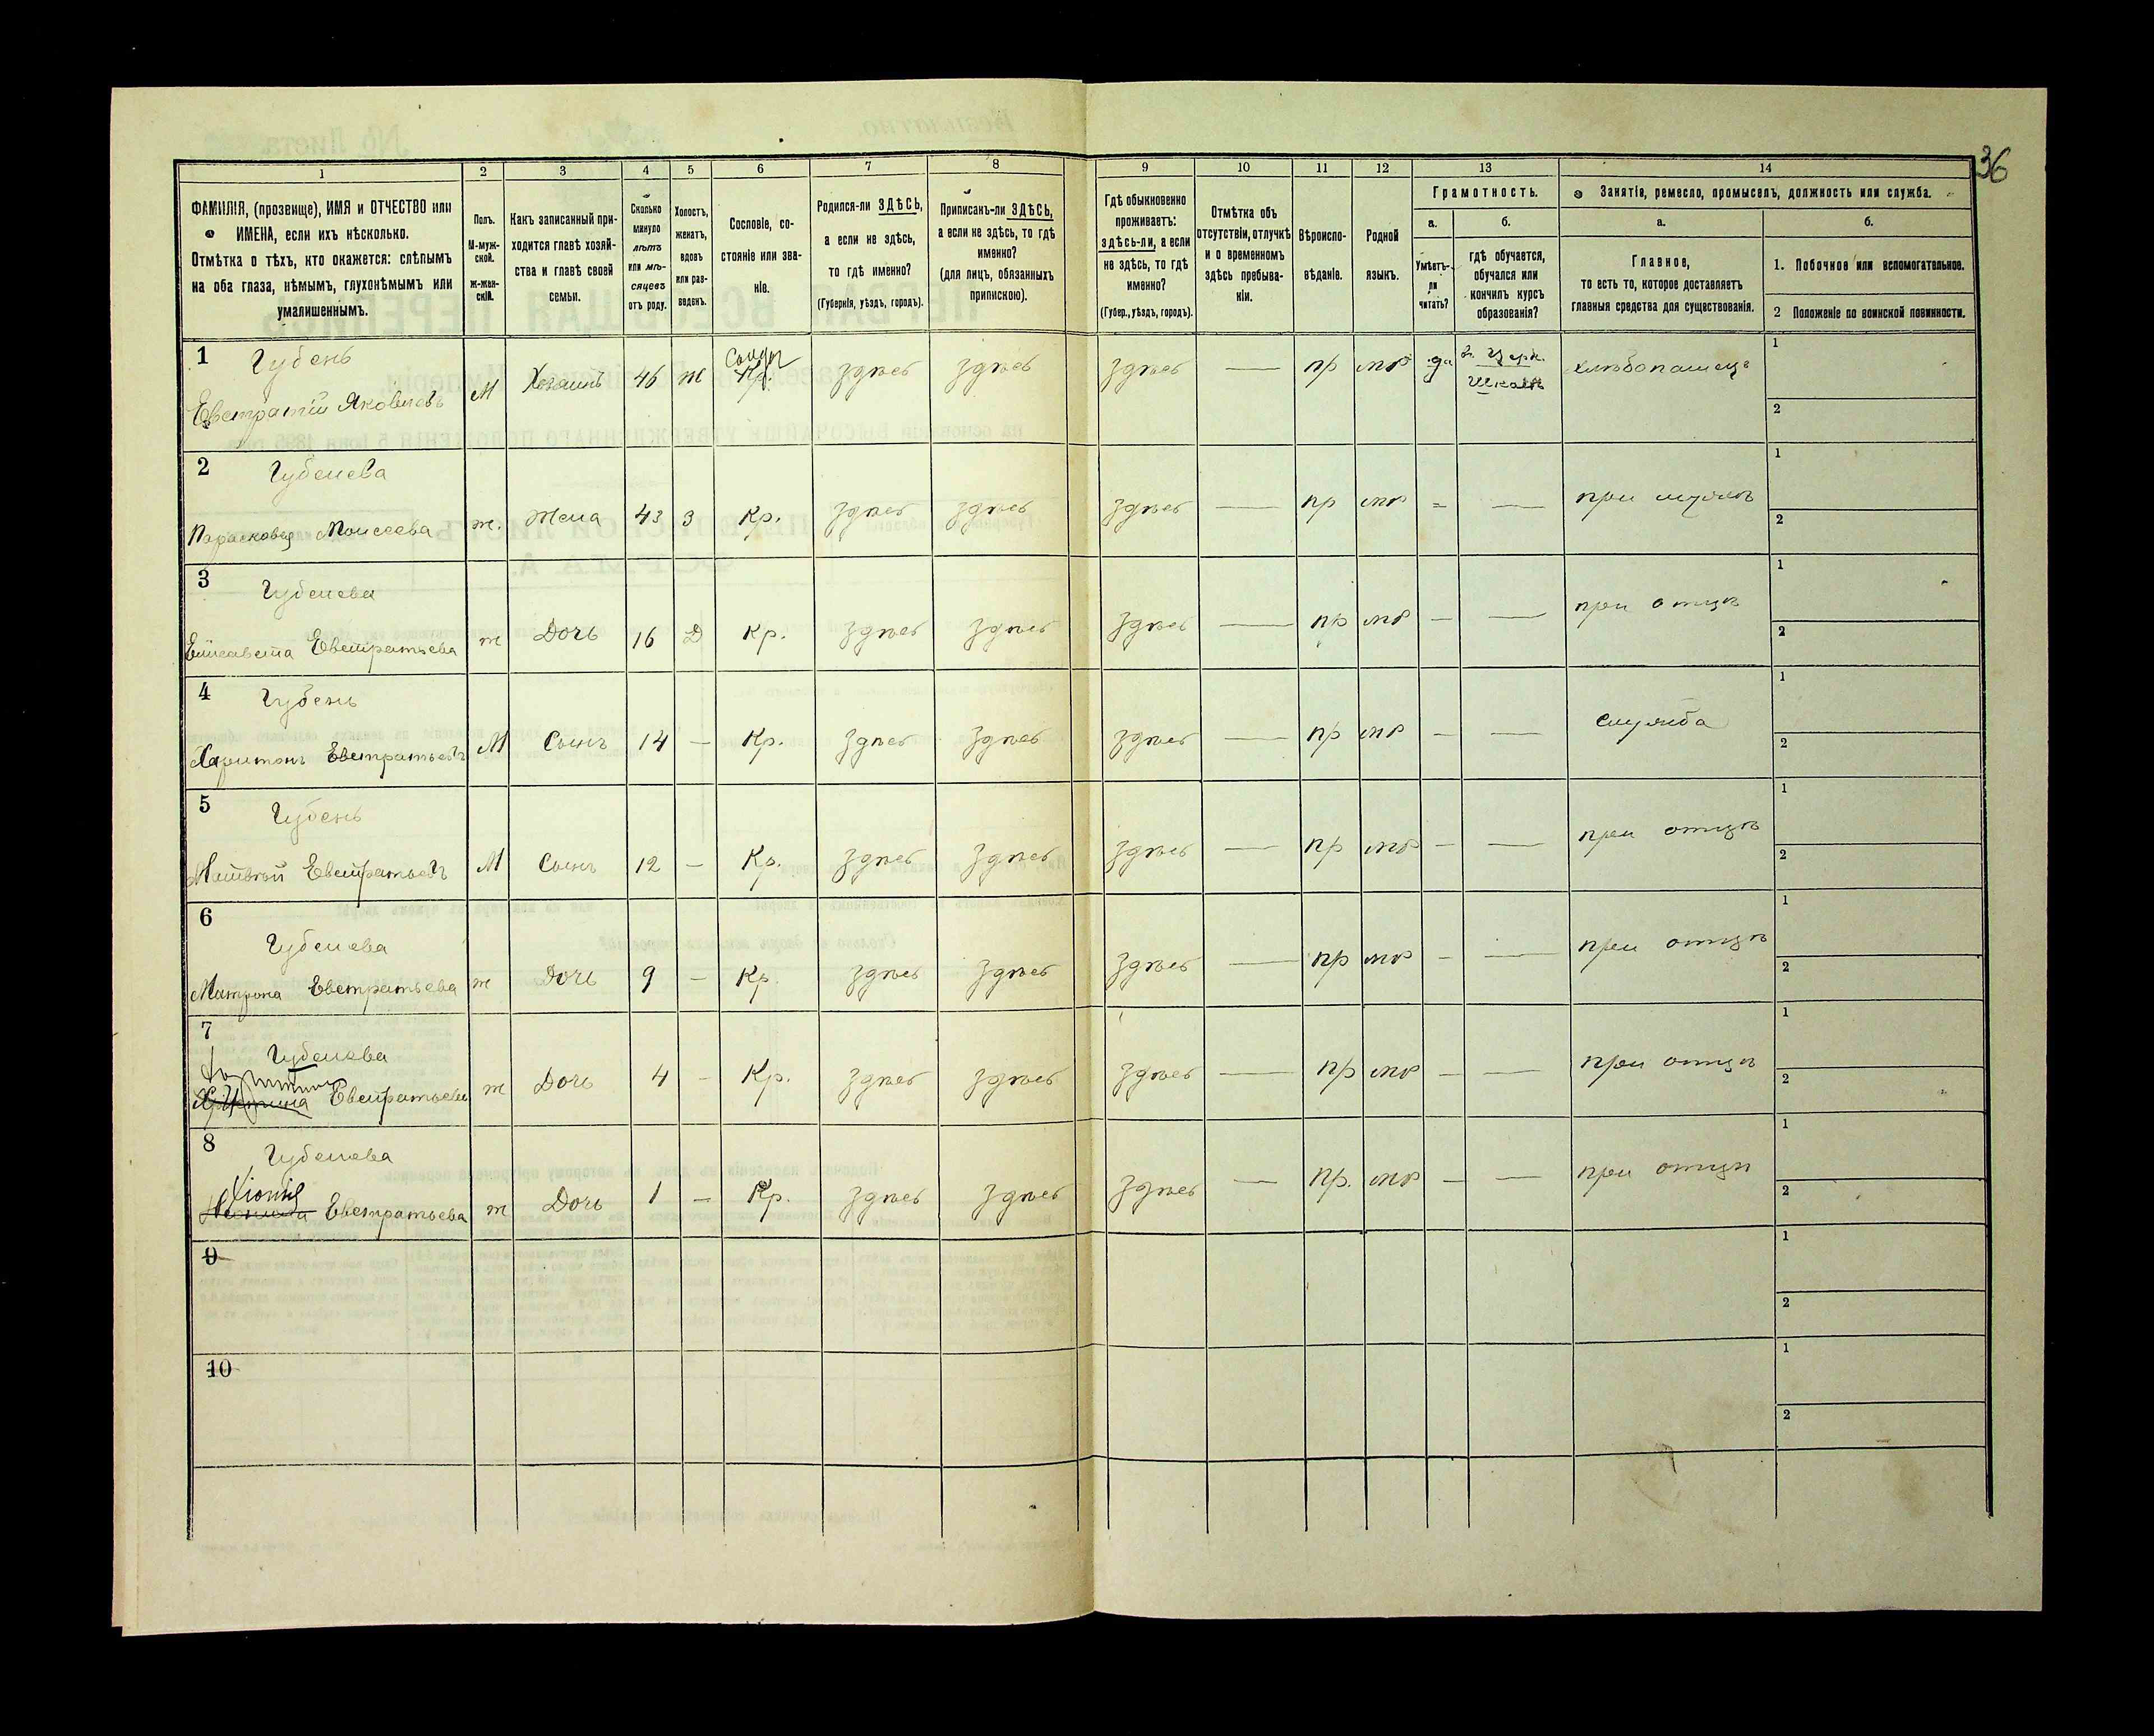 36
1 2 3 4 5 6 7 8 9 10 11 12 13 14
ФАМИЛІЯ, (прозвище), ИМЯ и ОТЧЕСТВО или
ИМЕНА, если ихъ нѣсколько.
Отмѣтка о тѣхъ, кто окажется: слѣпымъ
на оба глаза, нѣмымъ, глухонѣмымъ или
умалишеннымъ.
Полъ.
М-муж-
ской.
ж-жен-
скій.
Какъ записанный при-
ходится главѣ хозяй-
ства и главѣ своей
семьи.
Сколько
минуло
лѣтъ
или мѣ-
сяцевъ
отъ роду.
Холостъ,
женатъ,
вдовъ
или раз-
веденъ.
Сословіе, со-
стояніе или зва-
ніе.
Родился-ли ЗДѢСЬ,
а если не здѣсь,
то гдѣ именно?
(Губернія, уѣздъ, городъ).
Приписанъ-ли ЗДѢСЬ,
а если не здѣсь, то гдѣ
именно?
(для лицъ, обязанныхъ
припискою).
Гдѣ обыкновенно
проживаетъ:
здѣсь-ли, а если
не здѣсь, то гдѣ
именно?
(Губер., уѣздъ, городъ).
Отмѣтка объ
отсутствіи, отлучкѣ
и о временномъ
здѣсь пребыва-
ніи.
Вѣроиспо-
вѣданіе.
Родной
языкъ.
Грамотность.
а.
Умѣетъ-
ли
читать?
б.
гдѣ обучается,
обучался или
кончилъ курсъ
образованія?
Занятіе, ремесло, промыселъ, должность или служба.
а.
Главное,
то есть то, которое доставляетъ
главныя средства для существованія.
б.
1. Побочное или вспомогательное.
2 Положеніе по воинской повинности.
1 Губень
Евстратій Яковлевъ М Хозяинъ 46 ж Кр. здѣсь здѣсь здѣсь — пр мр да Церк. Школѣ хлѣбопашецъ 1
2
2 Губенева
Парасковея Моисеева ж. Жена 43 З Кр. здѣсь здѣсь здѣсь — пр мр – — при мужѣ 1
2
3 Губенева
Елисавета Евстратьева ж Дочь 16 Д Кр. здѣсь здѣсь здѣсь — пр мр – — при отцѣ 1
2
4 Губень
Харитонъ Евстратьевъ М Сынъ 14 – Кр. здѣсь здѣсь здѣсь — пр мр – — служба 1
2
5 Губень
Матвѣй Евстратьевъ М Сынъ 12 – Кр. здѣсь здѣсь здѣсь — пр мр – — при отцѣ 1
2
6 Губенева
Матрона Евстратьева ж Дочь 9 – Кр. здѣсь здѣсь здѣсь — пр мр – — при отцѣ 1
2
7 Губенева
Евстратьева ж Дочь 4 – Кр. здѣсь здѣсь здѣсь — пр мр – — при отцѣ 1
2
8 Губенева
Хіонія Евстратьева ж Дочь 1 – Кр. здѣсь здѣсь здѣсь — пр. мр – — при отцѣ 1
2
9 1
2
10 1
2